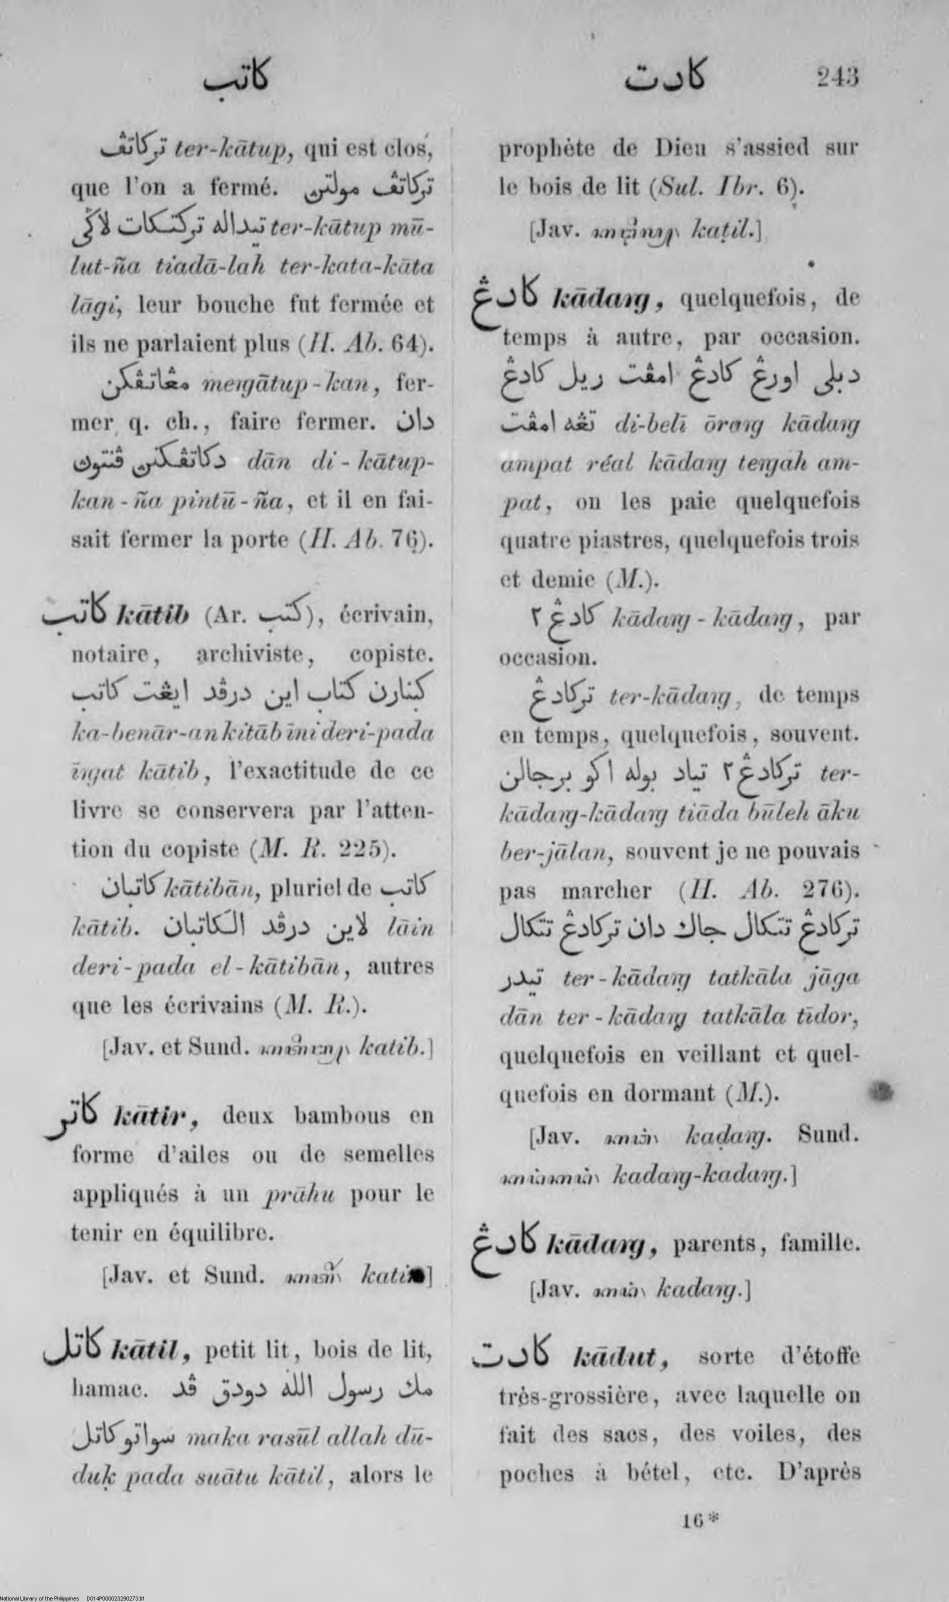 كاتب
كادت
243
تركاتڤ ter-kātup, qui est clos,
que l'on a fermé. تركاتڤ مولتڽ
تيداله تركتكات لاڬي ter-kātup mū-
lut-ña tiadā-lah ter-kata-kāta
lāgi, leur bouche fut fermée et
ils ne parlaient plus (H. Ab. 64).
مڠاتڤكن meŋgātup-kan, fer-
mer q. ch., faire fermer. دان
دكاتڤكنڽ ڤنتوڽ dān di-kātup-
kan-ña pintū-ña, et il en fai-
sait fermer la porte (H. Ab. 76).
كاتب kātib (Ar. كتب), écrivain,
notaire, archiviste, copiste.
كبنارن كتاب اين درڤد ايڠت كاتب
ka-benār-an kitāb īni deri-pada
īŋat kātib, l'exactitude de ce
livre se conservera par l'atten-
tion du copiste (M. R. 225).
كاتبان kātibān, pluriel de كاتب
kātib. لاين درڤد الكاتبان lāin
deri-pada el-kātibān, autres
que les écrivains (M. R.).
[Jav. et Sund. katib.]
كاتر kātir, deux bambous en
forme d'ailes ou de semelles
appliqués à un prāhu pour le
tenir en équilibre.
[Jav. et Sund. ]
كاتل kātil, petit lit, bois de lit,
hamac. مك رسول الله دودق ڤد
سواتو كاتل maka rasūl allah dū-
duḳ pada suātu kātil, alors le
prophète de Dieu s'assied sur
le bois de lit (Sul. Ibr. 6).
[Jav. kaṭil.]
كادڠ kādaŋ, quelquefois, de
temps à autre, par occasion.
دبلي اورڠ كادڠ امڤت ريل كادڠ
تڠه امڤت di-belī ōraŋ kādaŋ
ampat réal kādaŋ teŋah am-
pat, on les paie quelquefois
quatre piastres, quelquefois trois
et demie (M.).
كادڠ ٢ kādaŋ-kādaŋ, par
occasion.
تركادڠ ter-kādaŋ, de temps
en temps, quelquefois, souvent.
تركادڠ ٢ تياد بوله اكو برجالن ter-
kādaŋ-kādaŋ tiāda būleh āku
ber-jālan, souvent je ne pouvais
pas marcher (H. Ab. 276).
تركادڠ تتكال جاك دان تركادڠ تتكال
تيدر ter-kādaŋ tatkāla jāga
dān ter-kādaŋ tatkāla tīdor,
quelquefois en veillant et quel-
quefois en dormant (M.).
[Jav. kaḍaŋ. Sund.
kadaŋ-kadaŋ.]
كادڠ kādaŋ, parents, famille.
[Jav. kadaŋ.]
كادت kādut, sorte d'étoffe
très-grossière, avec laquelle on
fait des sacs, des voiles, des
poches à bétel, etc. D'après
16*
National Library of the Philippines